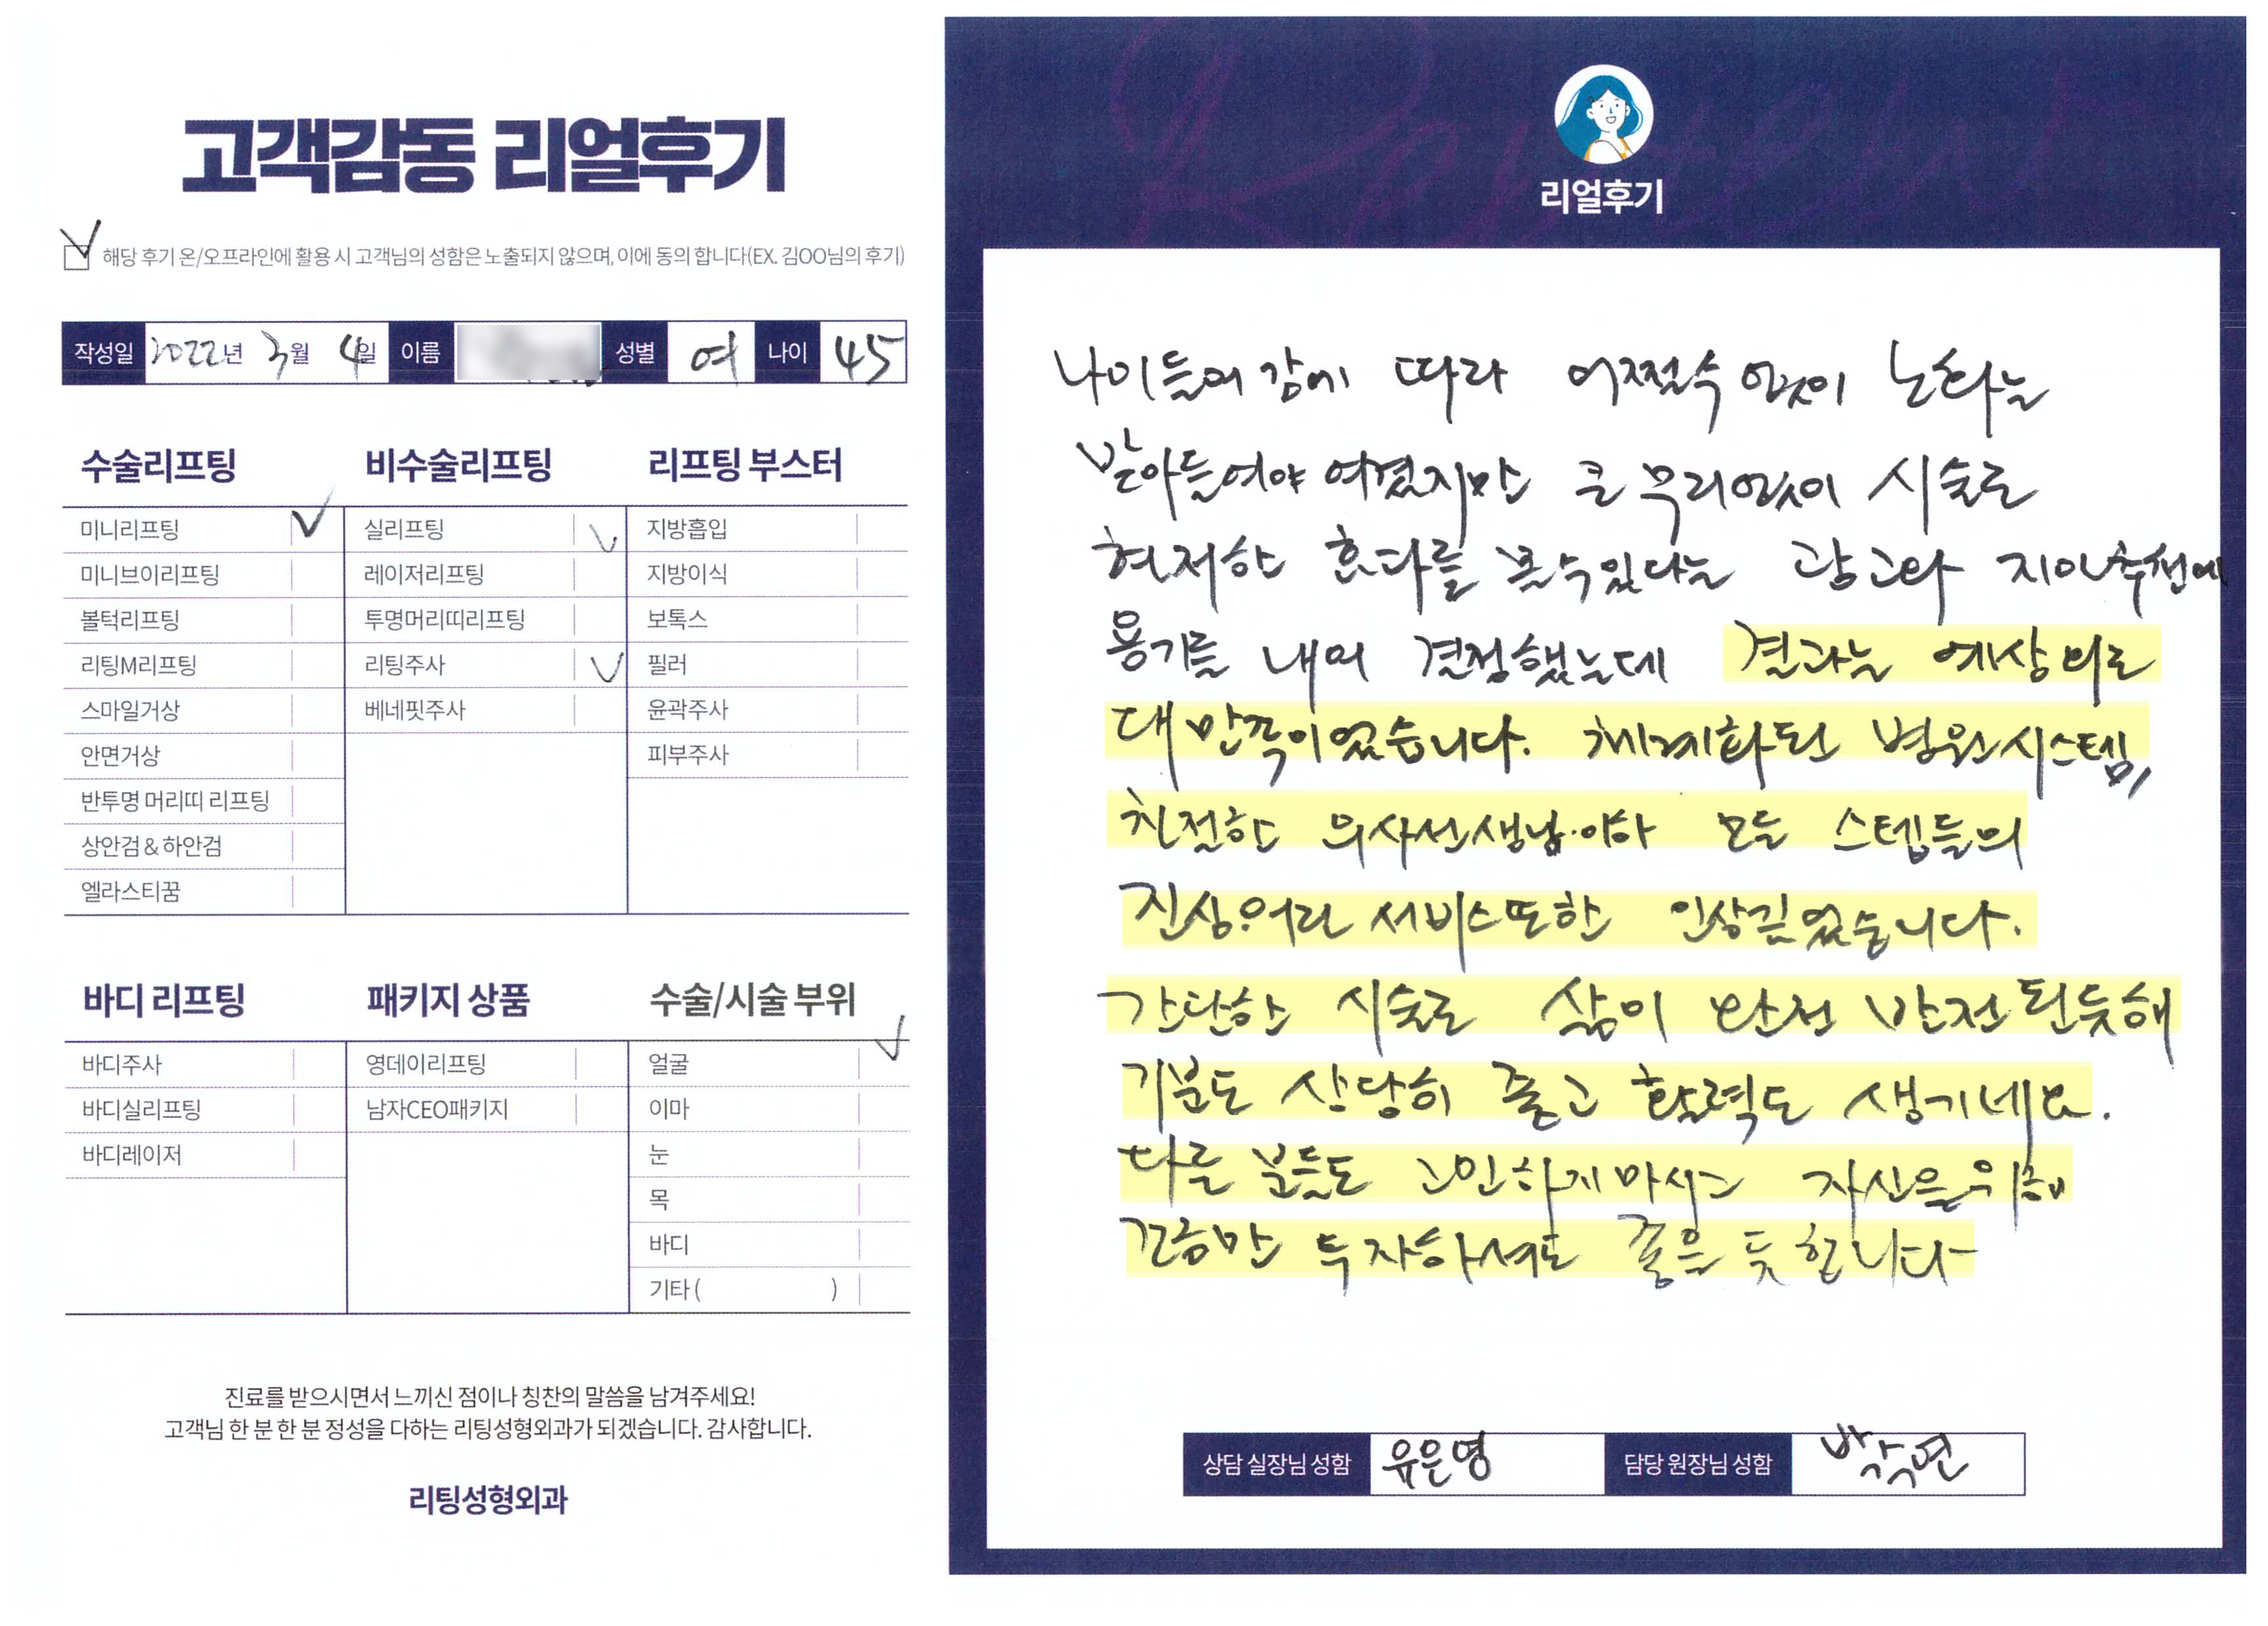 고객감동 리얼후기
해당 후기 온/오프라인에 활용 시 고객님의 성함은 노출되지 않으며, 이에 동의 합니다(EX. 김OO님의 후기)
작성일 2022년 3월 4일 이름 성별 여 나이 45
수술리프팅
미니리프팅
미니브이리프팅
볼턱리프팅
리팅M리프팅
스마일거상
안면거상
반투명 머리띠 리프팅
상안검 & 하안검
엘라스티꿈
비수술리프팅
실리프팅
레이저리프팅
투명머리띠리프팅
리팅주사
베네핏주사
리프팅 부스터
지방흡입
지방이식
보톡스
필러
윤곽주사
피부주사
바디 리프팅
바디주사
바디실리프팅
바디레이저
패키지 상품
영데이리프팅
남자CEO패키지
수술/시술 부위
얼굴
이마
눈
목
바디
기타 ( )
진료를 받으시면서 느끼신 점이나 칭찬의 말씀을 남겨주세요!
고객님 한 분 한 분 정성을 다하는 리팅성형외과가 되겠습니다. 감사합니다.
리팅성형외과
리얼후기
나이들어감에 따라 어쩔수 없이 노화는
받아들여야 여겼지만 큰 무리없이 시술로
현저한 효과를 볼수있다는 광고와 지인추천에
용기를 내어 결정했는데 결과는 예상외로
대만족이었습니다. 체계화된 병원시스템,
친절한 의사선생님.이하 모든 스텝들의
진심어린 서비스또한 인상깊었습니다.
간단한 시술로 삶이 완전 반전된듯해
기분도 상당히 좋고 활력도 생기네요.
다른 분들도 고민하지마시고 자신을위해
조금만 투자하셔도 좋을 듯 합니다
상담 실장님 성함 유은영 담당 원장님 성함